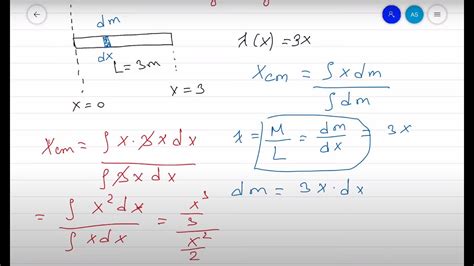 AS
dm
dx
L = 3m
x = 0
x = 3
λ(x) = 3x
X_cm = ∫ x dm / ∫ dm
λ = M / L = dm / dx = 3x
dm = 3x · dx
X_cm = ∫ x · 3x dx / ∫ 3x dx
= ∫ x² dx / ∫ x dx = (x³ / 3) / (x² / 2)